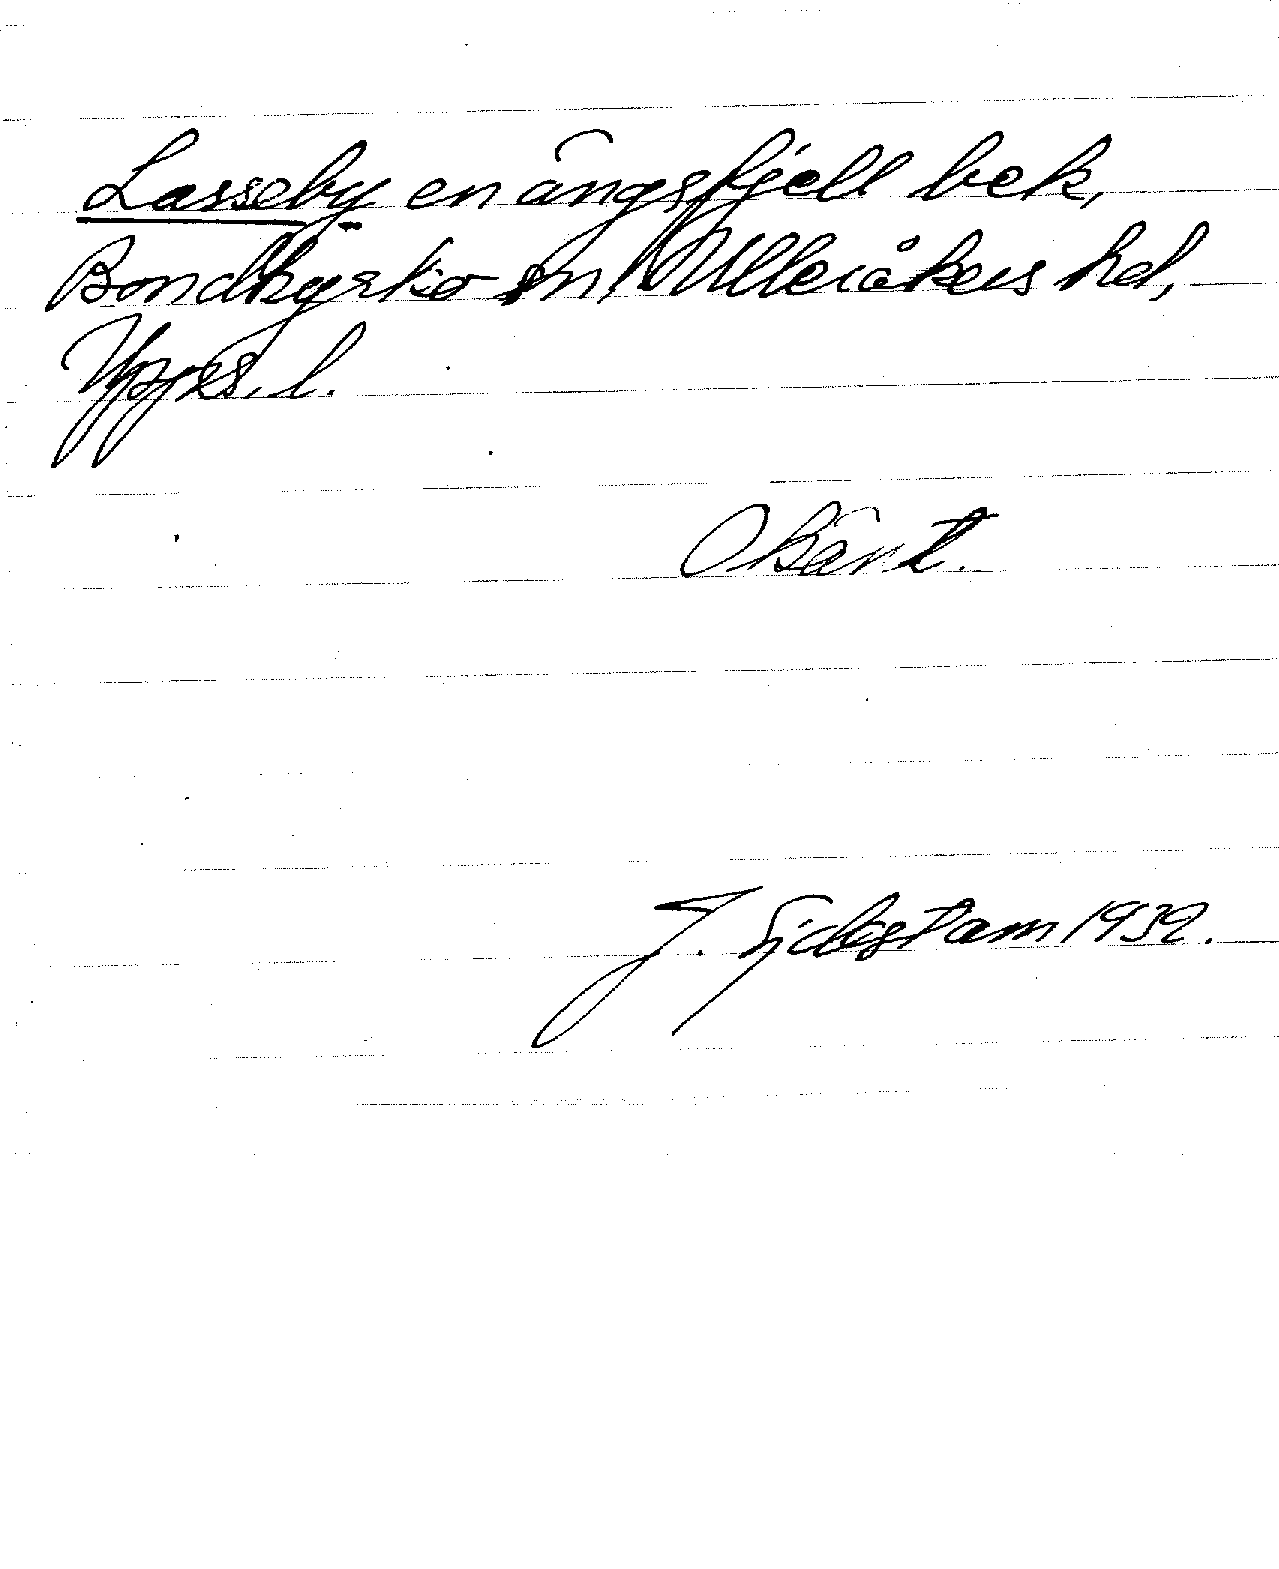 Lasseby en ängsfjell bek,
Bondkyrko sn Ulleråkers hd,
Upps. l.
Okänt.
J. Sjdestam 1932.